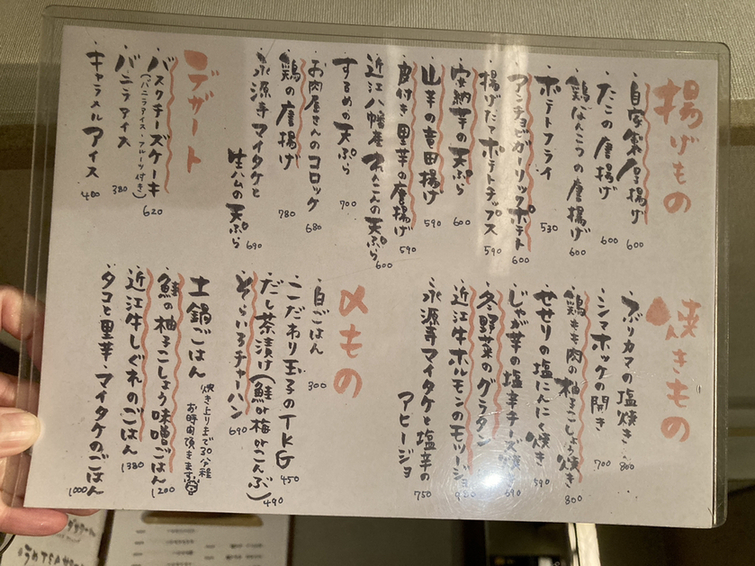 揚げもの
・自家製厚揚げ 600
・たこの唐揚げ 600
・鶏なんこつの唐揚げ 600
・ポテトフライ 530
・アンチョビガーリックポテト 600
・揚げたてポテトチップス 590
・安納芋の天ぷら 600
・山芋の竜田揚げ 590
・皮付き里芋の唐揚げ 590
・近江八幡産れんこんの天ぷら 600
・するめの天ぷら 700
・お肉屋さんのコロッケ 680
・鶏の唐揚げ 780
・永源寺マイタケと
生ハムの天ぷら 690
デザート
・バスクチーズケーキ 620
(バニラアイス・フルーツ付き)
・バニラアイス 380
・キャラメルアイス 400
焼きもの
・ブリカマの塩焼き 800
・シマホッケの開き 700
・鶏もも肉の柚子こしょう焼き 800
・セセリの塩にんにく焼き 590
・じゃが芋の塩辛チーズ焼き 690
・冬野菜のグラタン
・近江牛ホルモンのモツリージョ 980
・永源寺マイタケと塩芋の
アヒージョ 750
〆もの
・白ごはん 300
・こだわり玉子のTKG 450
・だし茶漬け(鮭or梅orこんぶ) 490
・そらいろチャーハン 690
土鍋ごはん
炊き上りまで30分程
お時間頂きます
・鮭の柚子こしょう味噌ごはん 1200
・近江牛しぐれのごはん 1380
・タコと里芋、マイタケのごはん 1000